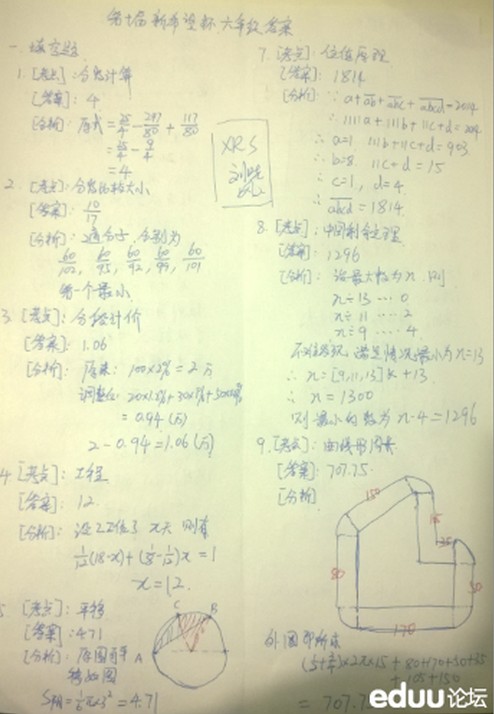 第十届新希望杯六年级答案
一、填空题
1.[考点]:分数计算
[答案]:4
[分析]:原式=25/4-287/80+117/80
=25/4-9/4
=4
XRS
2.[考点]:分数比较大小
[答案]:10/17
[分析]:通分子,分别为
60/102, 60/95, 60/92, 60/99, 60/101
第一个最小.
3.[考点]:分段计价
[答案]:1.06
[分析]:原来:100×2%=2万
=0.94(万)
2-0.94=1.06(万)
4.[考点]:工程
[答案]:12
[分析]:设乙工作了x天,则有
x=12.
5.[考点]:平移
[答案]:4.71
[分析]:原图可平
移如图
S阴=1/6π×3²=4.71
C B
A
7.[考点]:位值原理
[答案]:1814
[分析]:∵a+ab+abc+abcd=2014
∴1111a+111b+11c+d=2014
∴a=1 111b+11c+d=903
∴b=8 11c+d=15
∴c=1, d=4
∴abcd=1814.
8.[考点]:中国剩余定理
[答案]:1296
[分析]:设最大数为n.则
n÷13…0
n÷11…2
n÷9…4
不难发现,满足情况最小为n=13
∴n=[9,11,13]k+13
∴n=1300
则最小的数为n-4=1296
9.[考点]:曲线形周长
[答案]:707.75
[分析]
150
80
170
外圈即所求
+80+170+50+35
+105+150
=707.75
eduu论坛